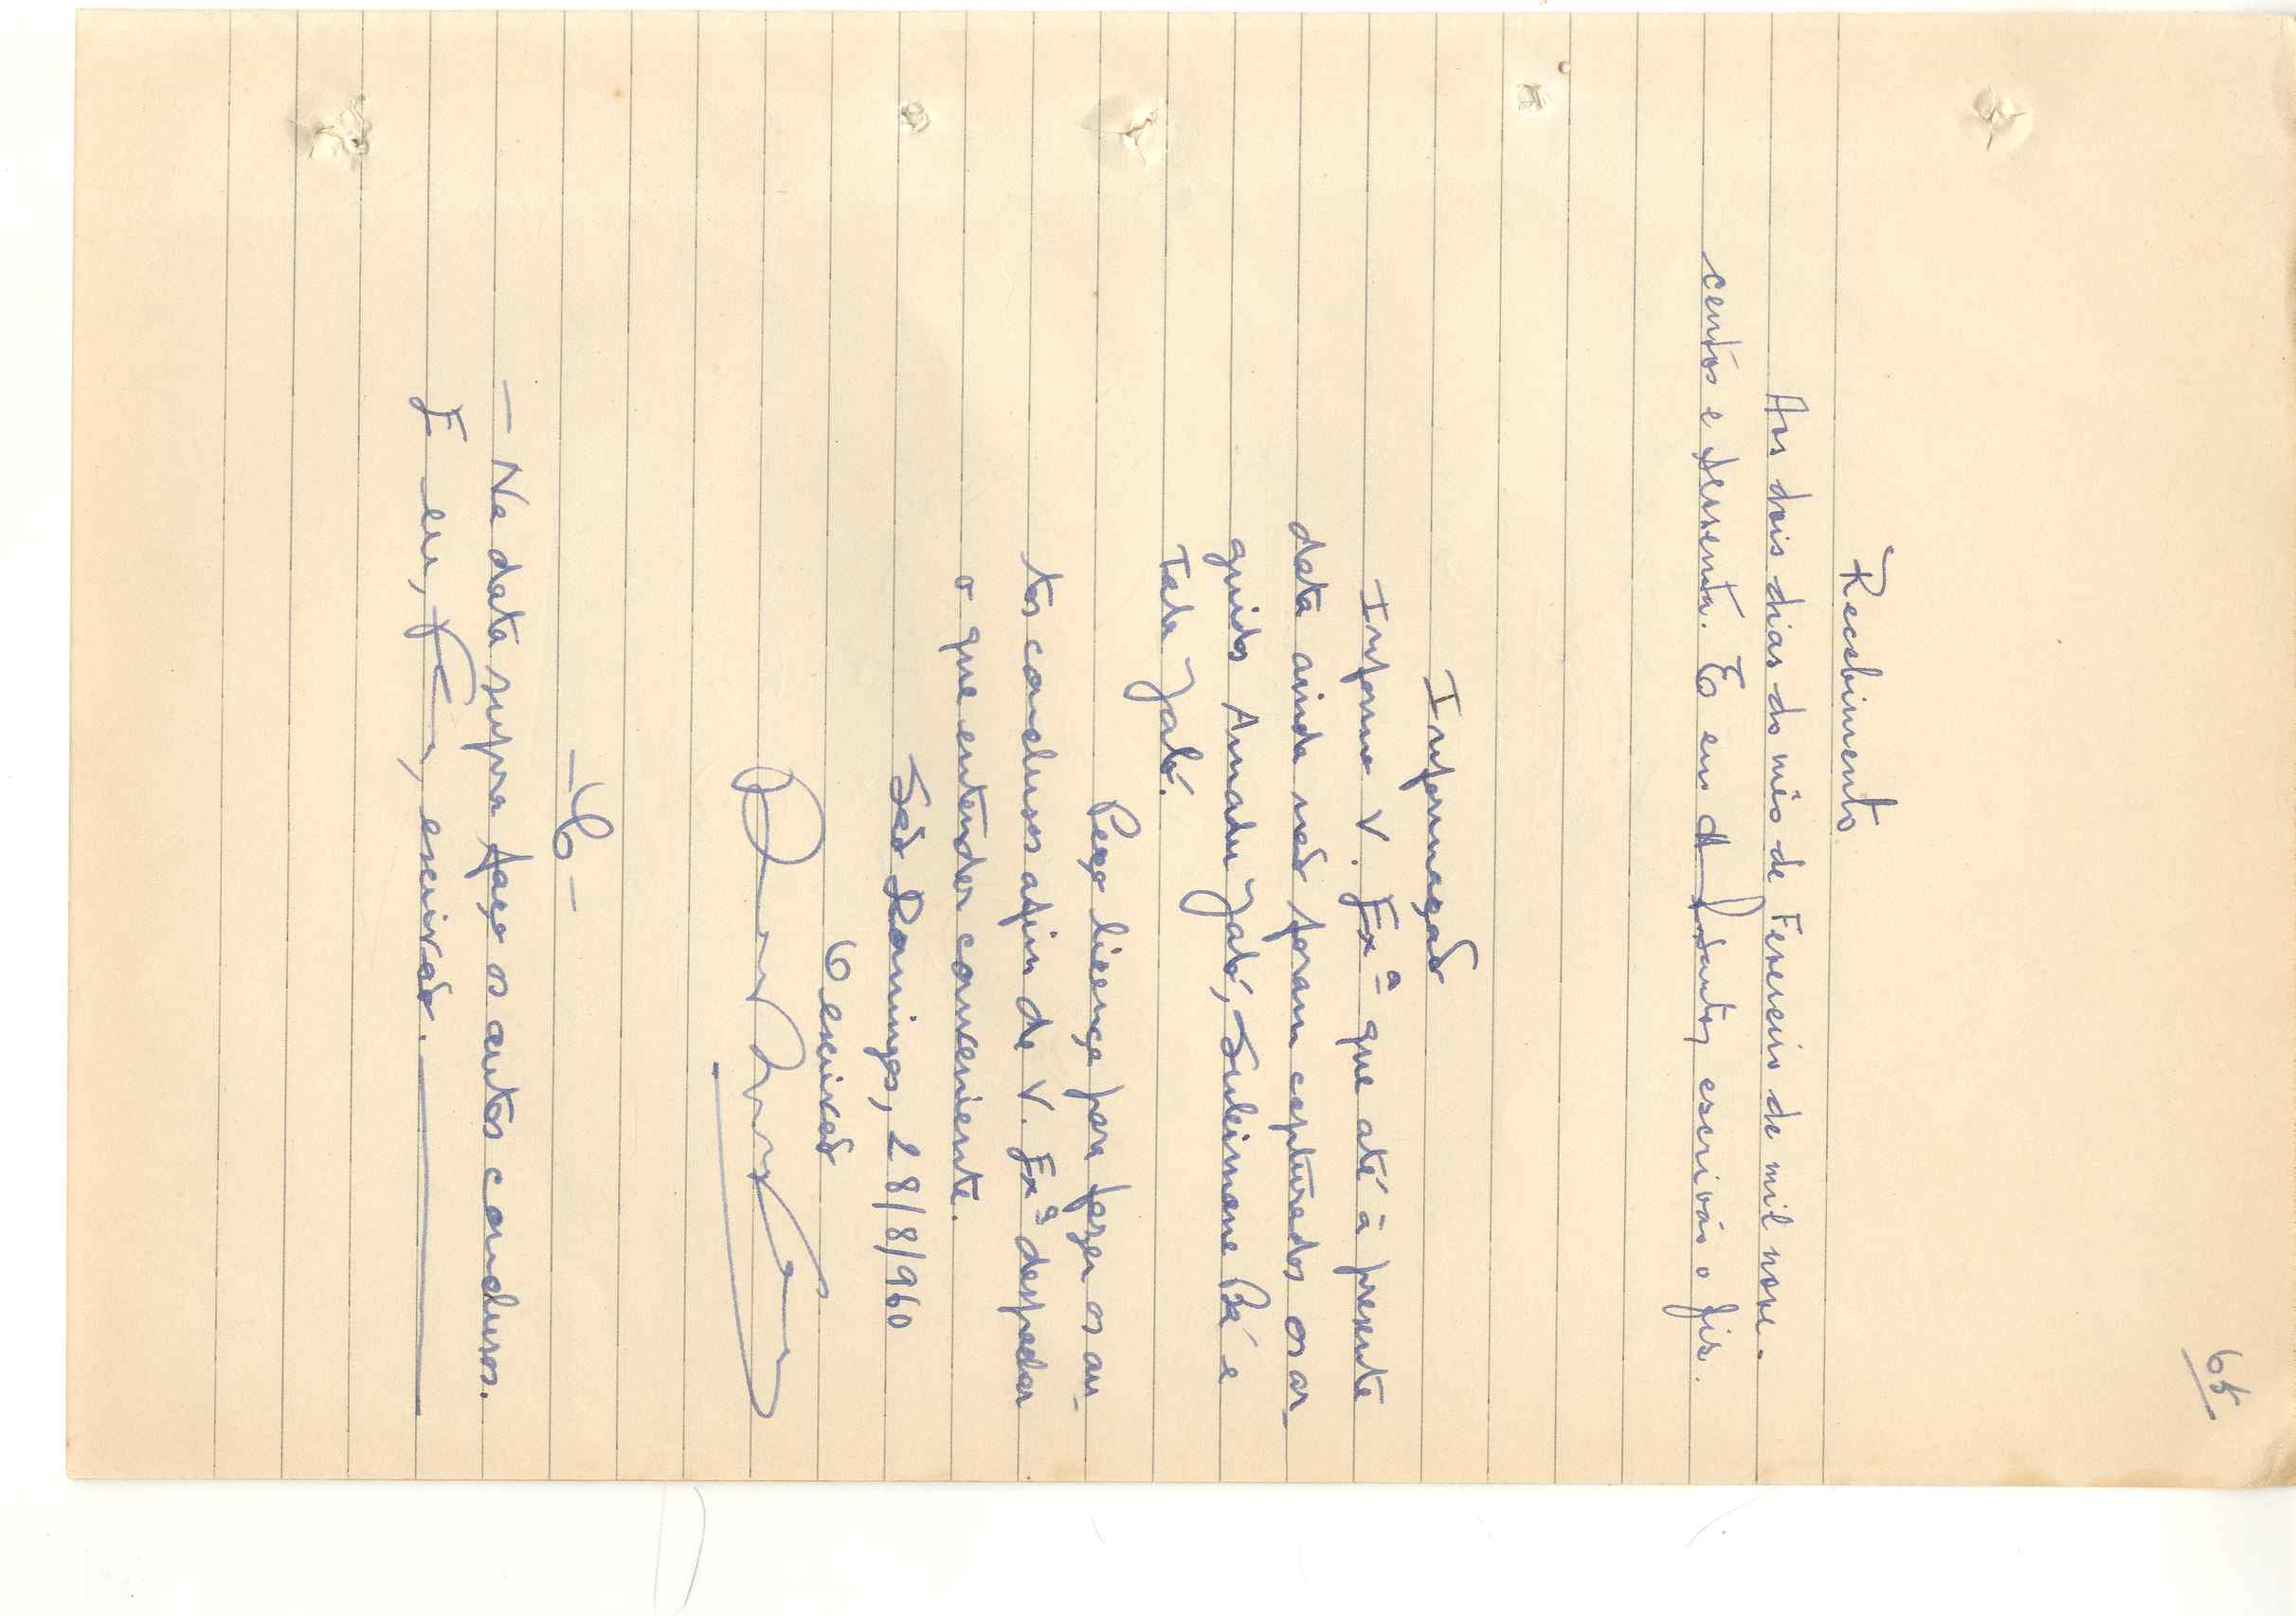 65
Recebimento
Aos dois dias do mês de Fevereiro de mil nove-
centos e sessenta. E eu escrivão o fiz.
Informação
Informo V. Exª que até à presente
data ainda não foram capturados os ar-
guidos Amadu Jaló, Suleimane Bá e
Tala Jaló.
Peço licença para fazer os au-
tos conclusos afim de V. Exª despachar
o que entender conveniente.
São Domingos, 28/8/960
O escrivão
-C-
- Na data supra faço os autos conclusos.
E eu, , escrivão.